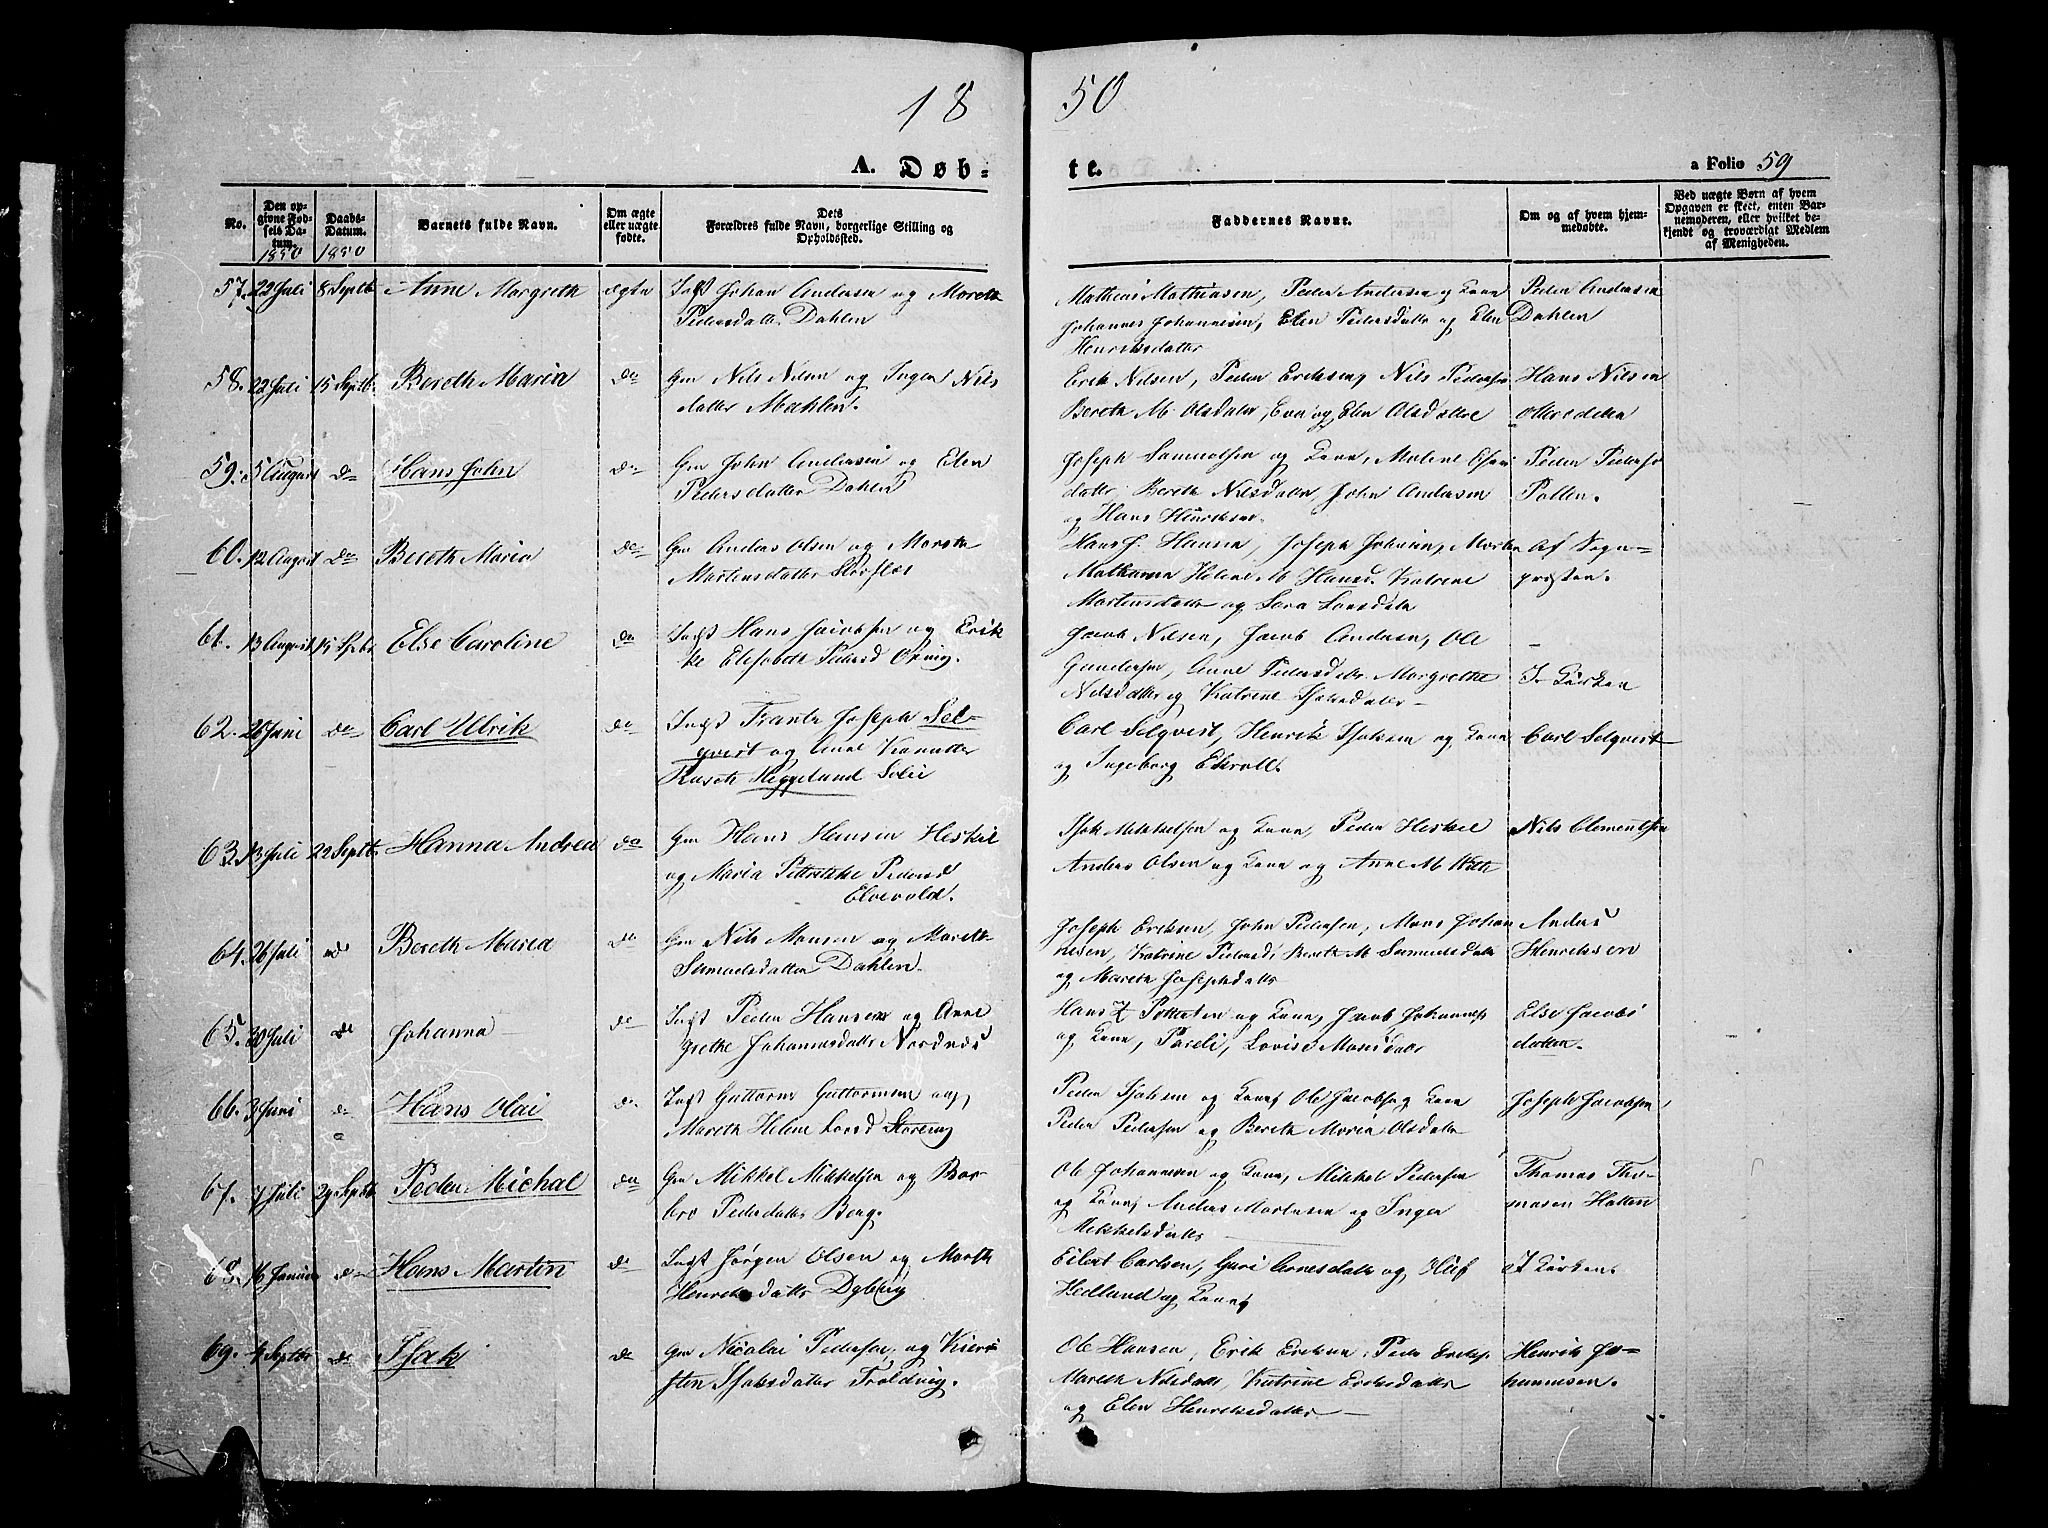 18 50
A. Døb- te.
a Folio 59
No.
Den op-
givne Fød-
sels Da-
tum.
1850
Daabs-
Datum.
1850
Barnets fulde Navn.
Om ægte
eller uægte
fødte.
Dets
Forældres fulde Navn, borgerlige Stilling og
Opholdssted.
Faddernes Navne.
Om og af hvem hjem-
medøbte.
Ved uægte Børn af hvem
Opgaven er skeet, enten Bar-
nemoderen, eller hvilket be-
kjendt og troværdigt Medlem
af Menigheden.
57. 22 Juli 8 Septb Anne Margreth ægte Indst Johan Andersen og Mareth
Pedersdatter Dahlen
Mathias Mathiasen, Peder Andersen og Kone
Johannes Johannesen, Elen Pedersdatter og Elen
Henriksdatter
Peder Andersen
Dahlen
58. 22 Juli 15 Septb. Bereth Maria do Gm Nils Nilsen og Inger Nils
datter Mæhlen.
Erik Nilsen, Peder Eriksen, Nils Pedersen
Bereth M. Olsdatr, Eva og Elen Olsdattre
Hans Nilsen
59. 5 August do Hans John do Gm John Andersen og Elen
Pedersdatter Dahlen
Joseph Samuelsen og Kone, Malene
datter Bereth Nilsdatter, John Andersen
og Hans Henriksen.
Peder Peders
Pollen.
60. 12 August do Bereth Maria do Gm Anders Olsen og Mareth
Martensdatter
Hans J. Hansen, Joseph Johnsen, Morten
Mathisen Helene M Hansd. Katrine
Martensdatter og Sara Larsdatr
Af Sogne-
præsten.
61. 13 August 15 Sptbr Else Caroline do Indst Hans Jacobsen og Erik
ke Elisabeth Pedersd
Jacob Nilsen, Jacob Andersen, Ole
Gundersen, Anne Pedersdatr. Margrethe
Nilsdatter og Katrine Isaksdatr
I Kirken
62. 26 Juni do Carl Ulrik do Indst Frantz Joseph Sel-
qvist og Anne
Heggelund
Carl Selqvist, Henrik Isaksen og Kone
og Ingeborg Ekroll.
Carl Selqvist
63. 13 Juli 22 Septb. Hanna Andrea do Gm Hans Hansen Heskel
og Maria Petrikke Pedersd
Elvevold.
Isak Mikkelsen og Kone, Peder Heskel
Anders Olsen og Kone og Anne M.
Nils Clementsen
64. 26 Juli do Bereth Maria do Gm Nils Monsen og Mareth
Samuelsdatter Dahlen.
Joseph Eriksen, John Pedersen, Mons Johan
nesen, Katrine Pedersd, Bereth M Samuelsdatr
og Mareth Josephsdatr
Anders
Henriksen
65. 30 Juli do Johanna do Indst Peder Hansen og Anne
Grethe Johannesdatter Nordnæs
Hans og Kone, Jacob Johannes
og Kone, Pareli, Lovise Monsdatr
Else Jacobs
datter.
66. 3 Juni do Hans Olai do Indst Guttorm Guttormsen og
Mareth Helene Larsd
Peder Isaksen og Kone, Ole Jacobs og Kone
Peder Pedersen og Bereth Maria Olsdatter
Joseph Jacobsen
67. 7 Juli 29 Septb Peder Michal do Gm Mikkel Mikkelsen og Bar-
bro Pedersdatter Berg.
Ole Johannesen og Kone, Mikkel Pedersen
og Kone, Anders Martensen og Inger
Mikkelsdatter
Thomas Tho-
masen Hatten
68. 16 do Hans Martin do Indst Jørgen Olsen og Mareth
Henriksdatter
Eilert Carlsen, Guri Arnesdatter og Oluf
Hedlund og Kone
I Kirken.
69. 4 Septbr do Isak do Gm Nicolai Pedersen og Kier-
sten Isaksdatter Troldvig.
Ole Hansen, Erik Eriksen, Peder Eriks
Mareth Nilsdatr, Katrine Eriksdatter
og Elen Henriksdatter
Henrik Jo-
hannesen.